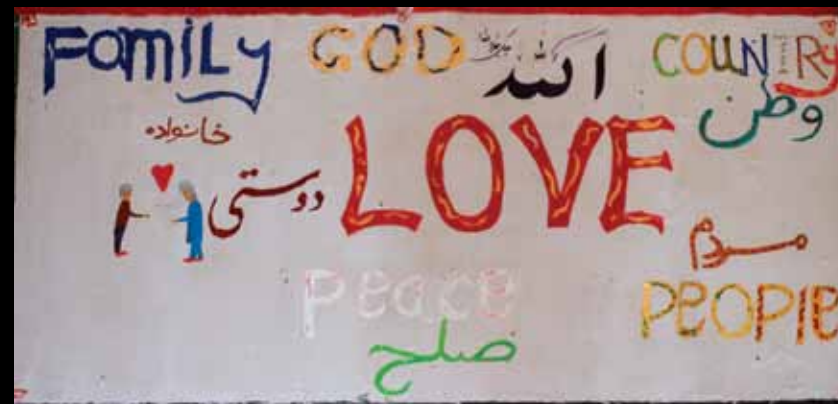 FamiLy GOD الله COUNTRy
خانواده
وطن
دوستی LOVE
مردم
peace
PEOPlE
صلح